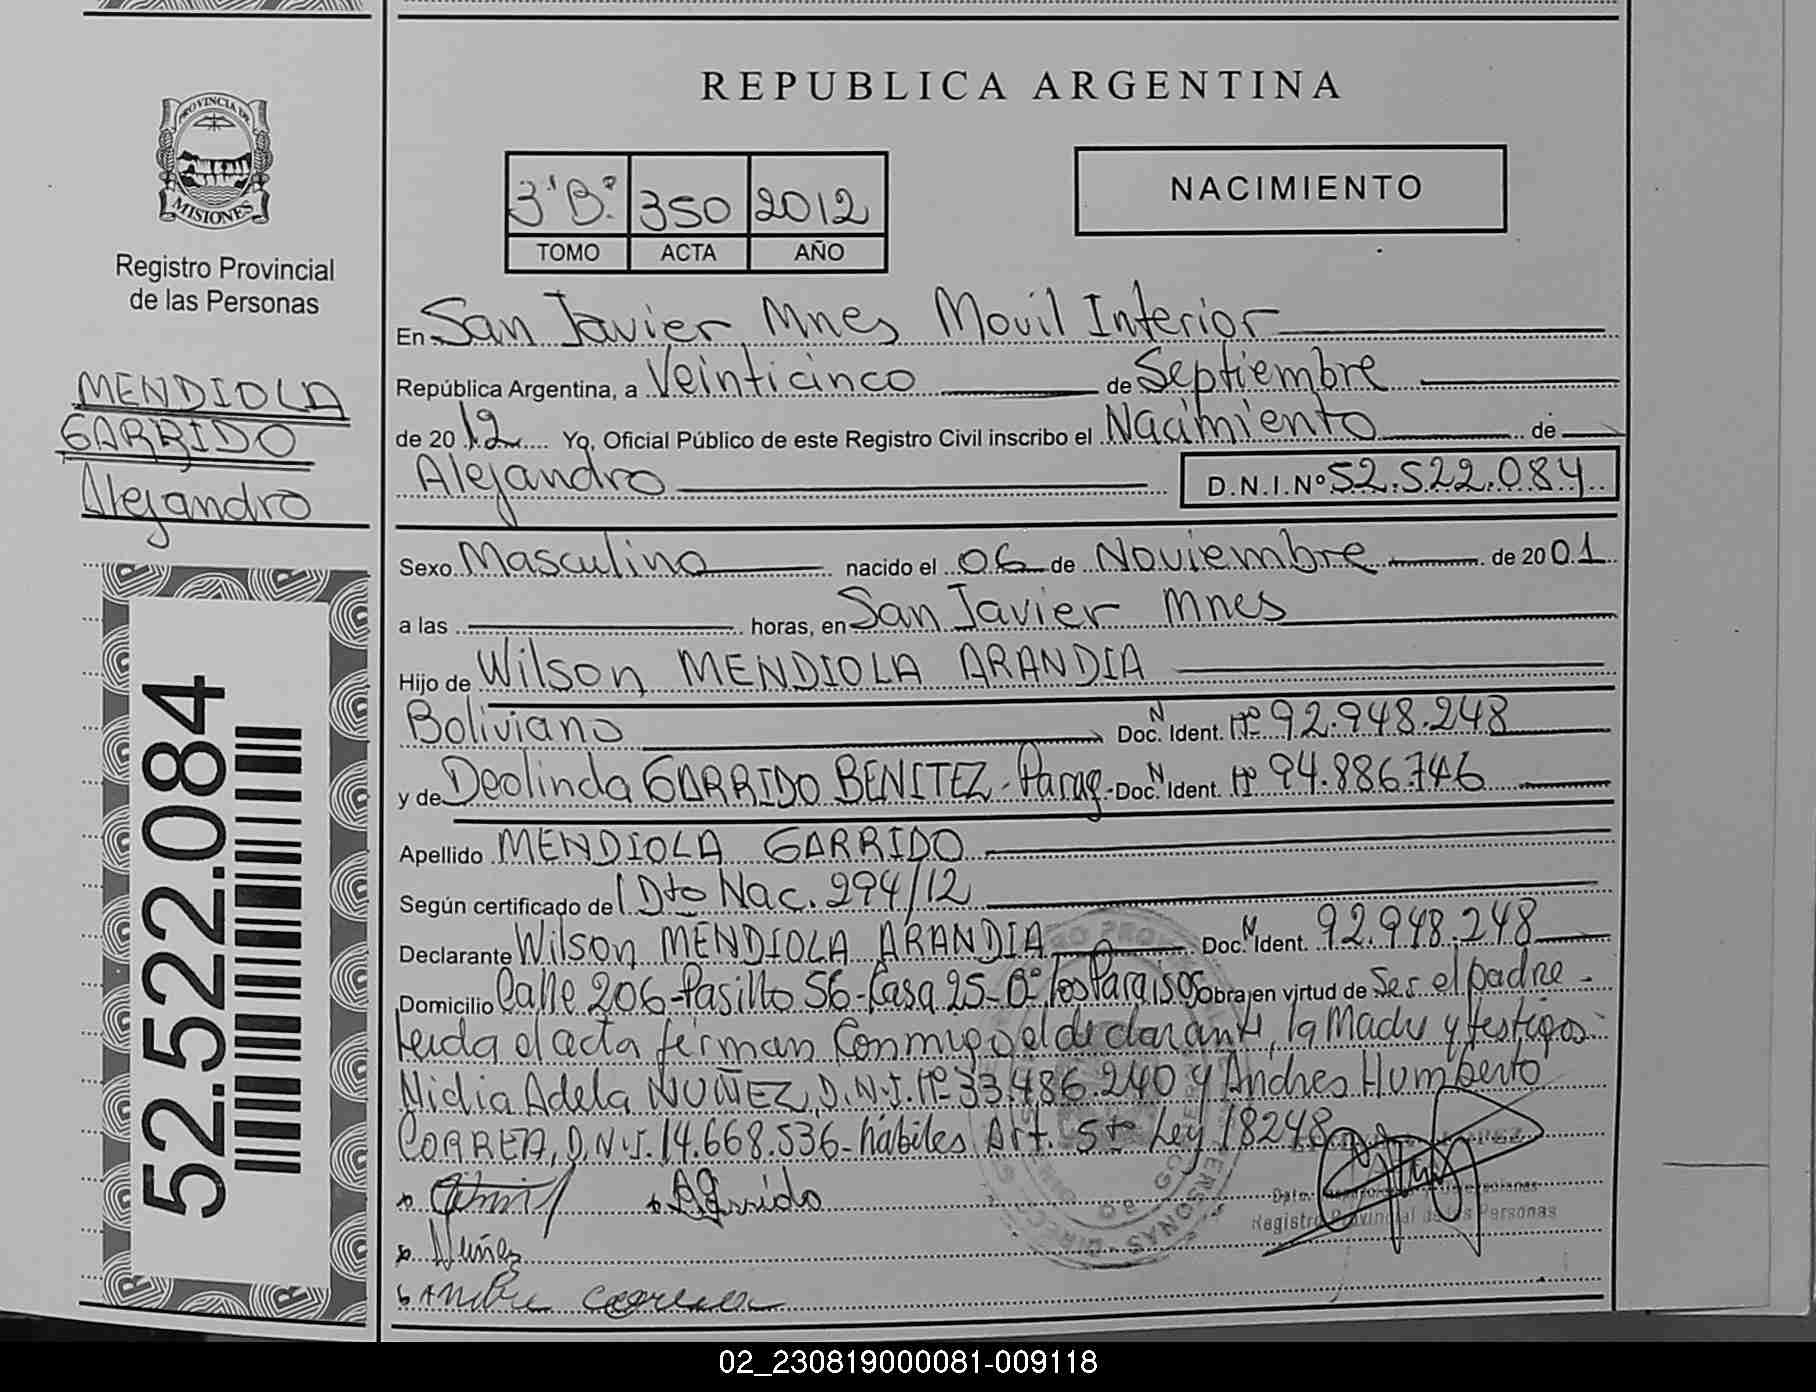 PROVINCIA DE
MISIONES
Registro Provincial
de las Personas
MENDIOLA
GARRIDO
Alejandro
52.522.084
REPUBLICA ARGENTINA
3' B.º 350 2012
TOMO ACTA AÑO
NACIMIENTO
En San Javier Mnes Movil Interior
República Argentina, a Veinticinco de Septiembre
de 2012 Yo, Oficial Público de este Registro Civil inscribo el Nacimiento de
Alejandro D.N.I.Nº 52.522.084
Sexo Masculino nacido el 06 de Noviembre de 2001
a las horas, en San Javier Mnes
Hijo de Wilson MENDIOLA ARANDIA
Boliviano Doc. N Ident. Nº 92.948.248
y de Deolinda GARRIDO BENITEZ - Parag. Doc. N Ident. Nº 94.886.746
Apellido MENDIOLA GARRIDO
Según certificado de Dto Nac. 294/12
Declarante Wilson MENDIOLA ARANDIA Doc. N Ident. 92.948.248
Domicilio Calle 206-Pasillo 56-Casa 25-Bº los Paraisos obra en virtud de Ser el padre -
Leida el acta firman Conmigo el declarante, la Madre y testigos:
Nidia Adela NUÑEZ, D.N.I. Nº 33.486.240 y Andres Humberto
CORREA, D.N.I. 14.668.536- hábiles Art. 5to Ley 18248
Garrido
Nuñez
Andre Correa
Registro Provincial de las Personas
02_230819000081-009118